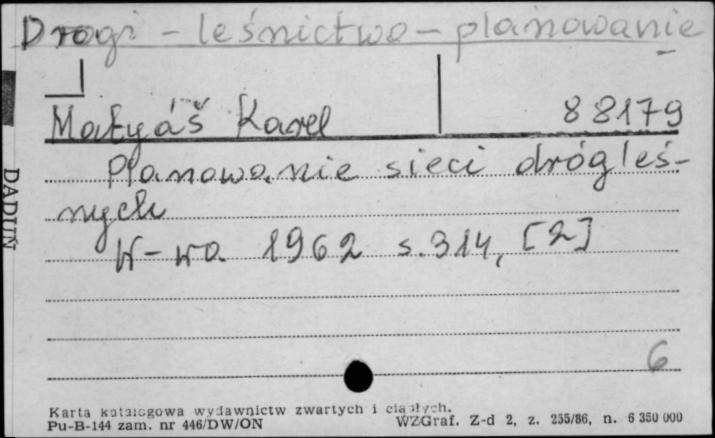 Drogi - leśnictwo - planowanie
Matyáš Karel 88179
Planowanie sieci dróg leś-
nych
W-wa 1962 s. 314, [2]
6
DADUŃ
Karta katalogowa wydawnictw zwartych i ciągłych.
Pu-B-144 zam. nr 446/DW/ON WZGraf. Z-d 2, z. 255/86, n. 6 350 000